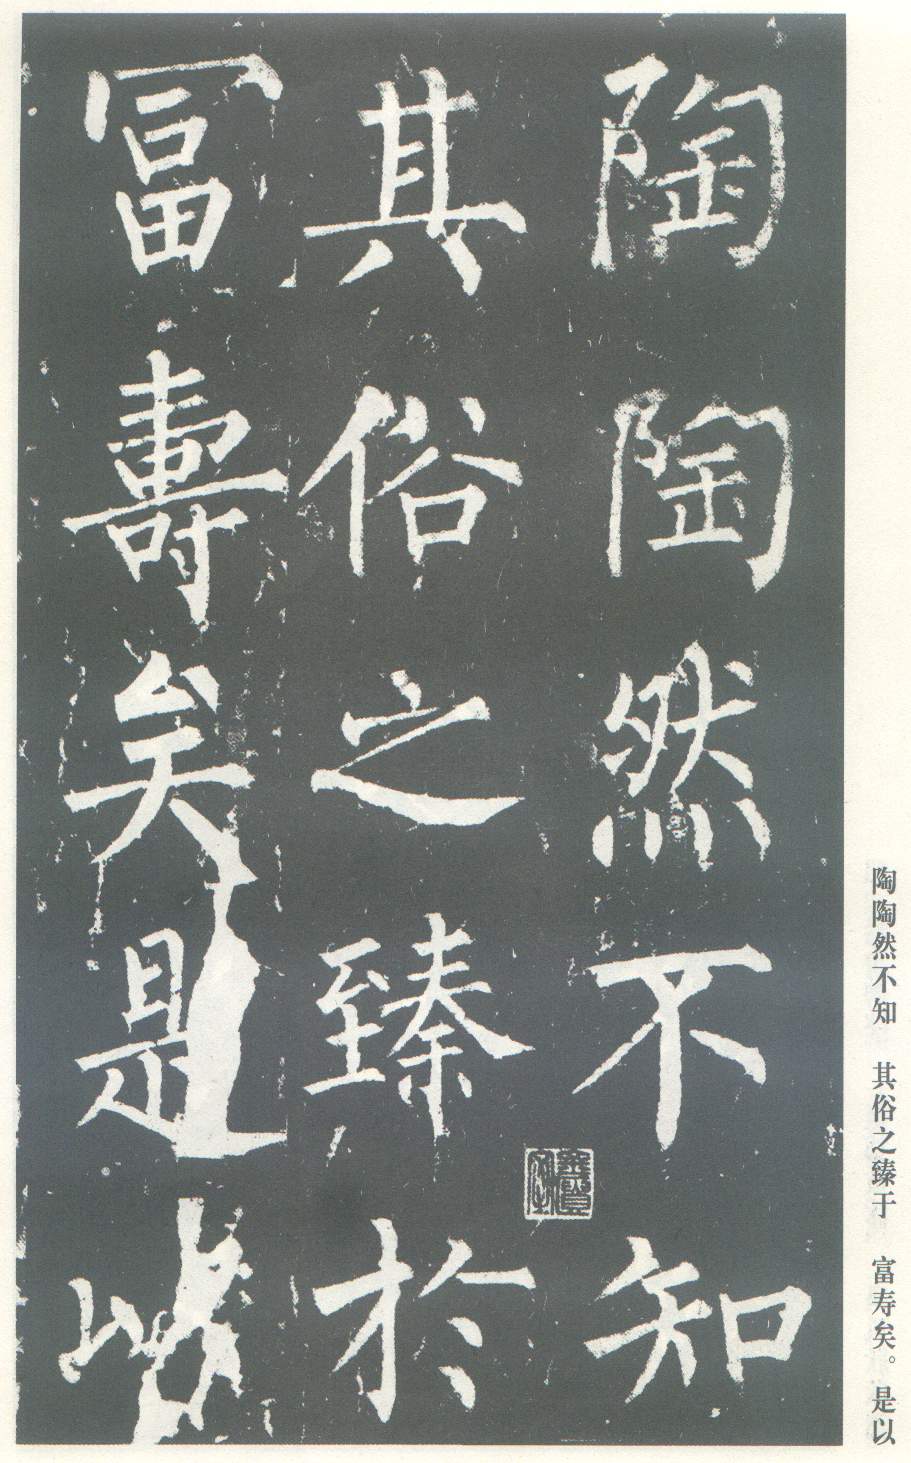 陶陶然不知
其俗之臻於
冨壽矣是以
陶陶然不知　其俗之臻于　富寿矣。是以